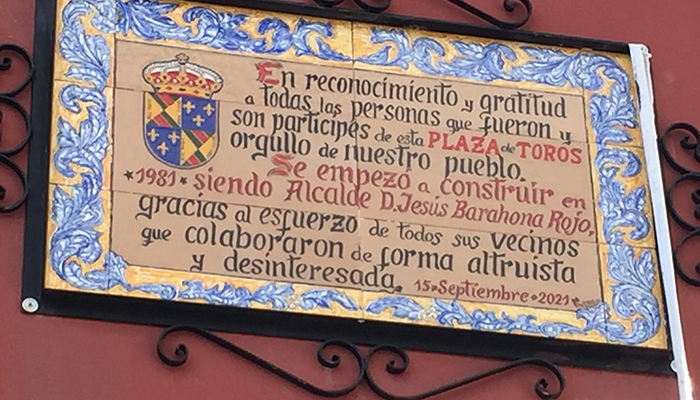 En reconocimiento y gratitud
a todas las personas que fueron y
son participes de esta PLAZA de TOROS
orgullo de nuestro pueblo.
Se empezó a construir en
*1981* siendo Alcalde D. Jesús Barahona Rojo,
gracias al esfuerzo de todos sus vecinos
que colaboraron de forma altruista
y desinteresada. 15*Septiembre*2021*